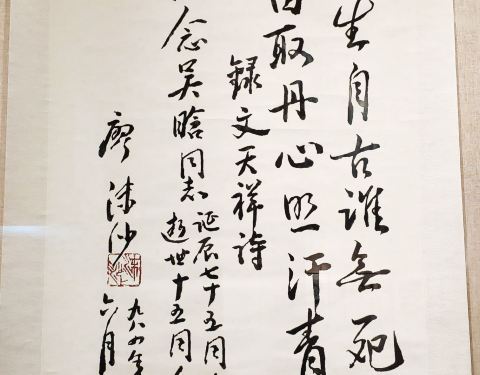 生自古谁无死
取丹心照汗青
録文天祥诗
念吴晗同志诞辰七十五周
逝世十五周年
廖沫沙
一九八四年
六月